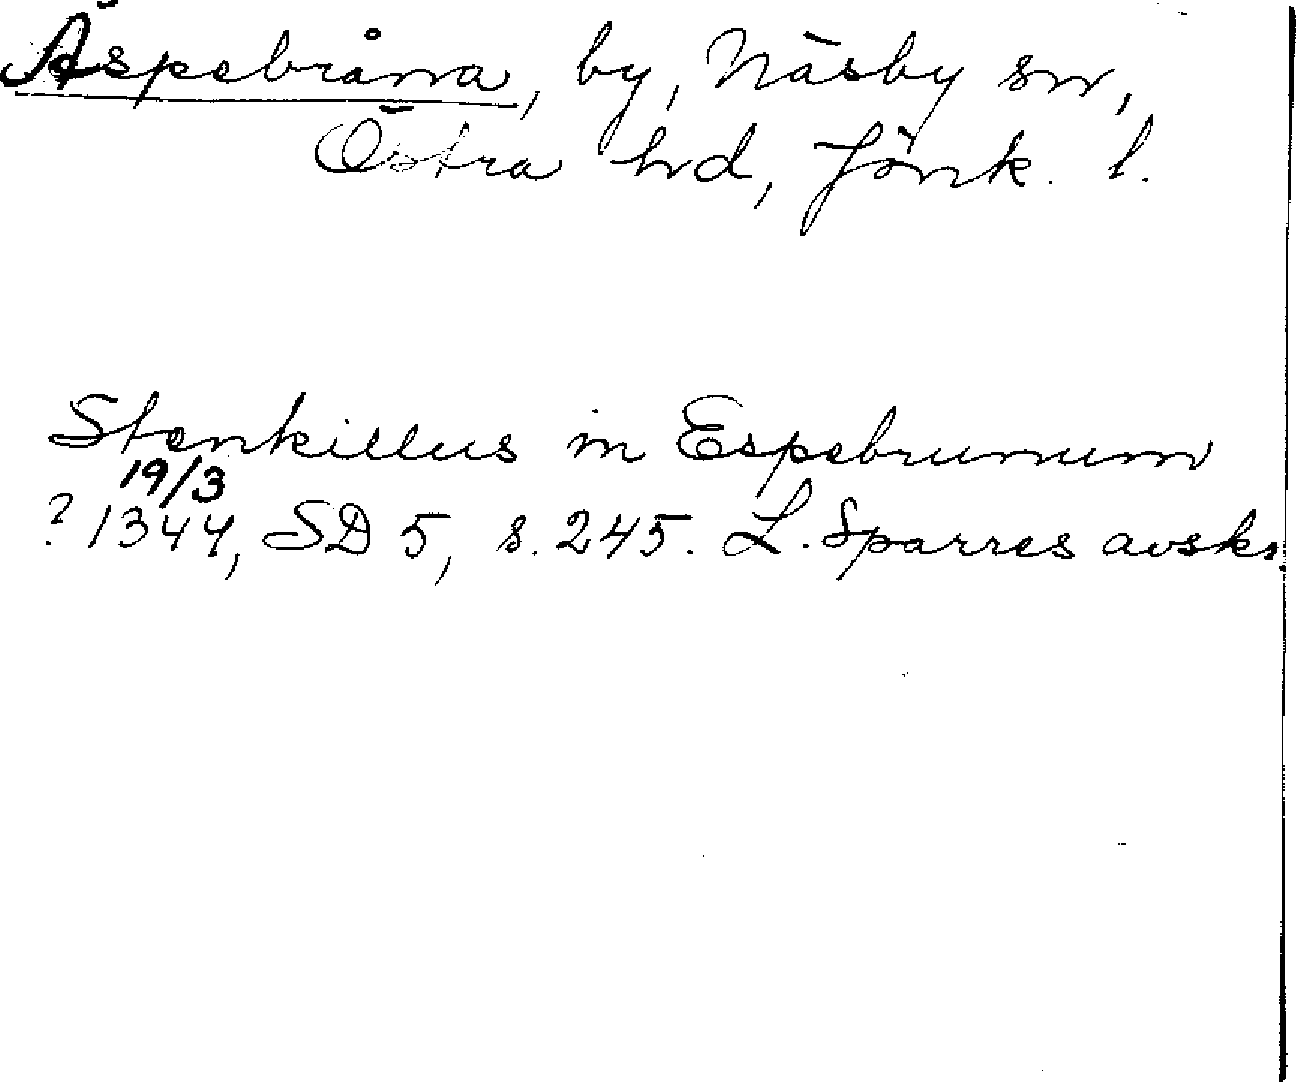 Äspebråna, by, Näsby sn,
Östra hd, Jönk. l.
Stenkillus in Espebrunum
19/3
? 1344, SD 5, s. 245. L. Sparres avskr.